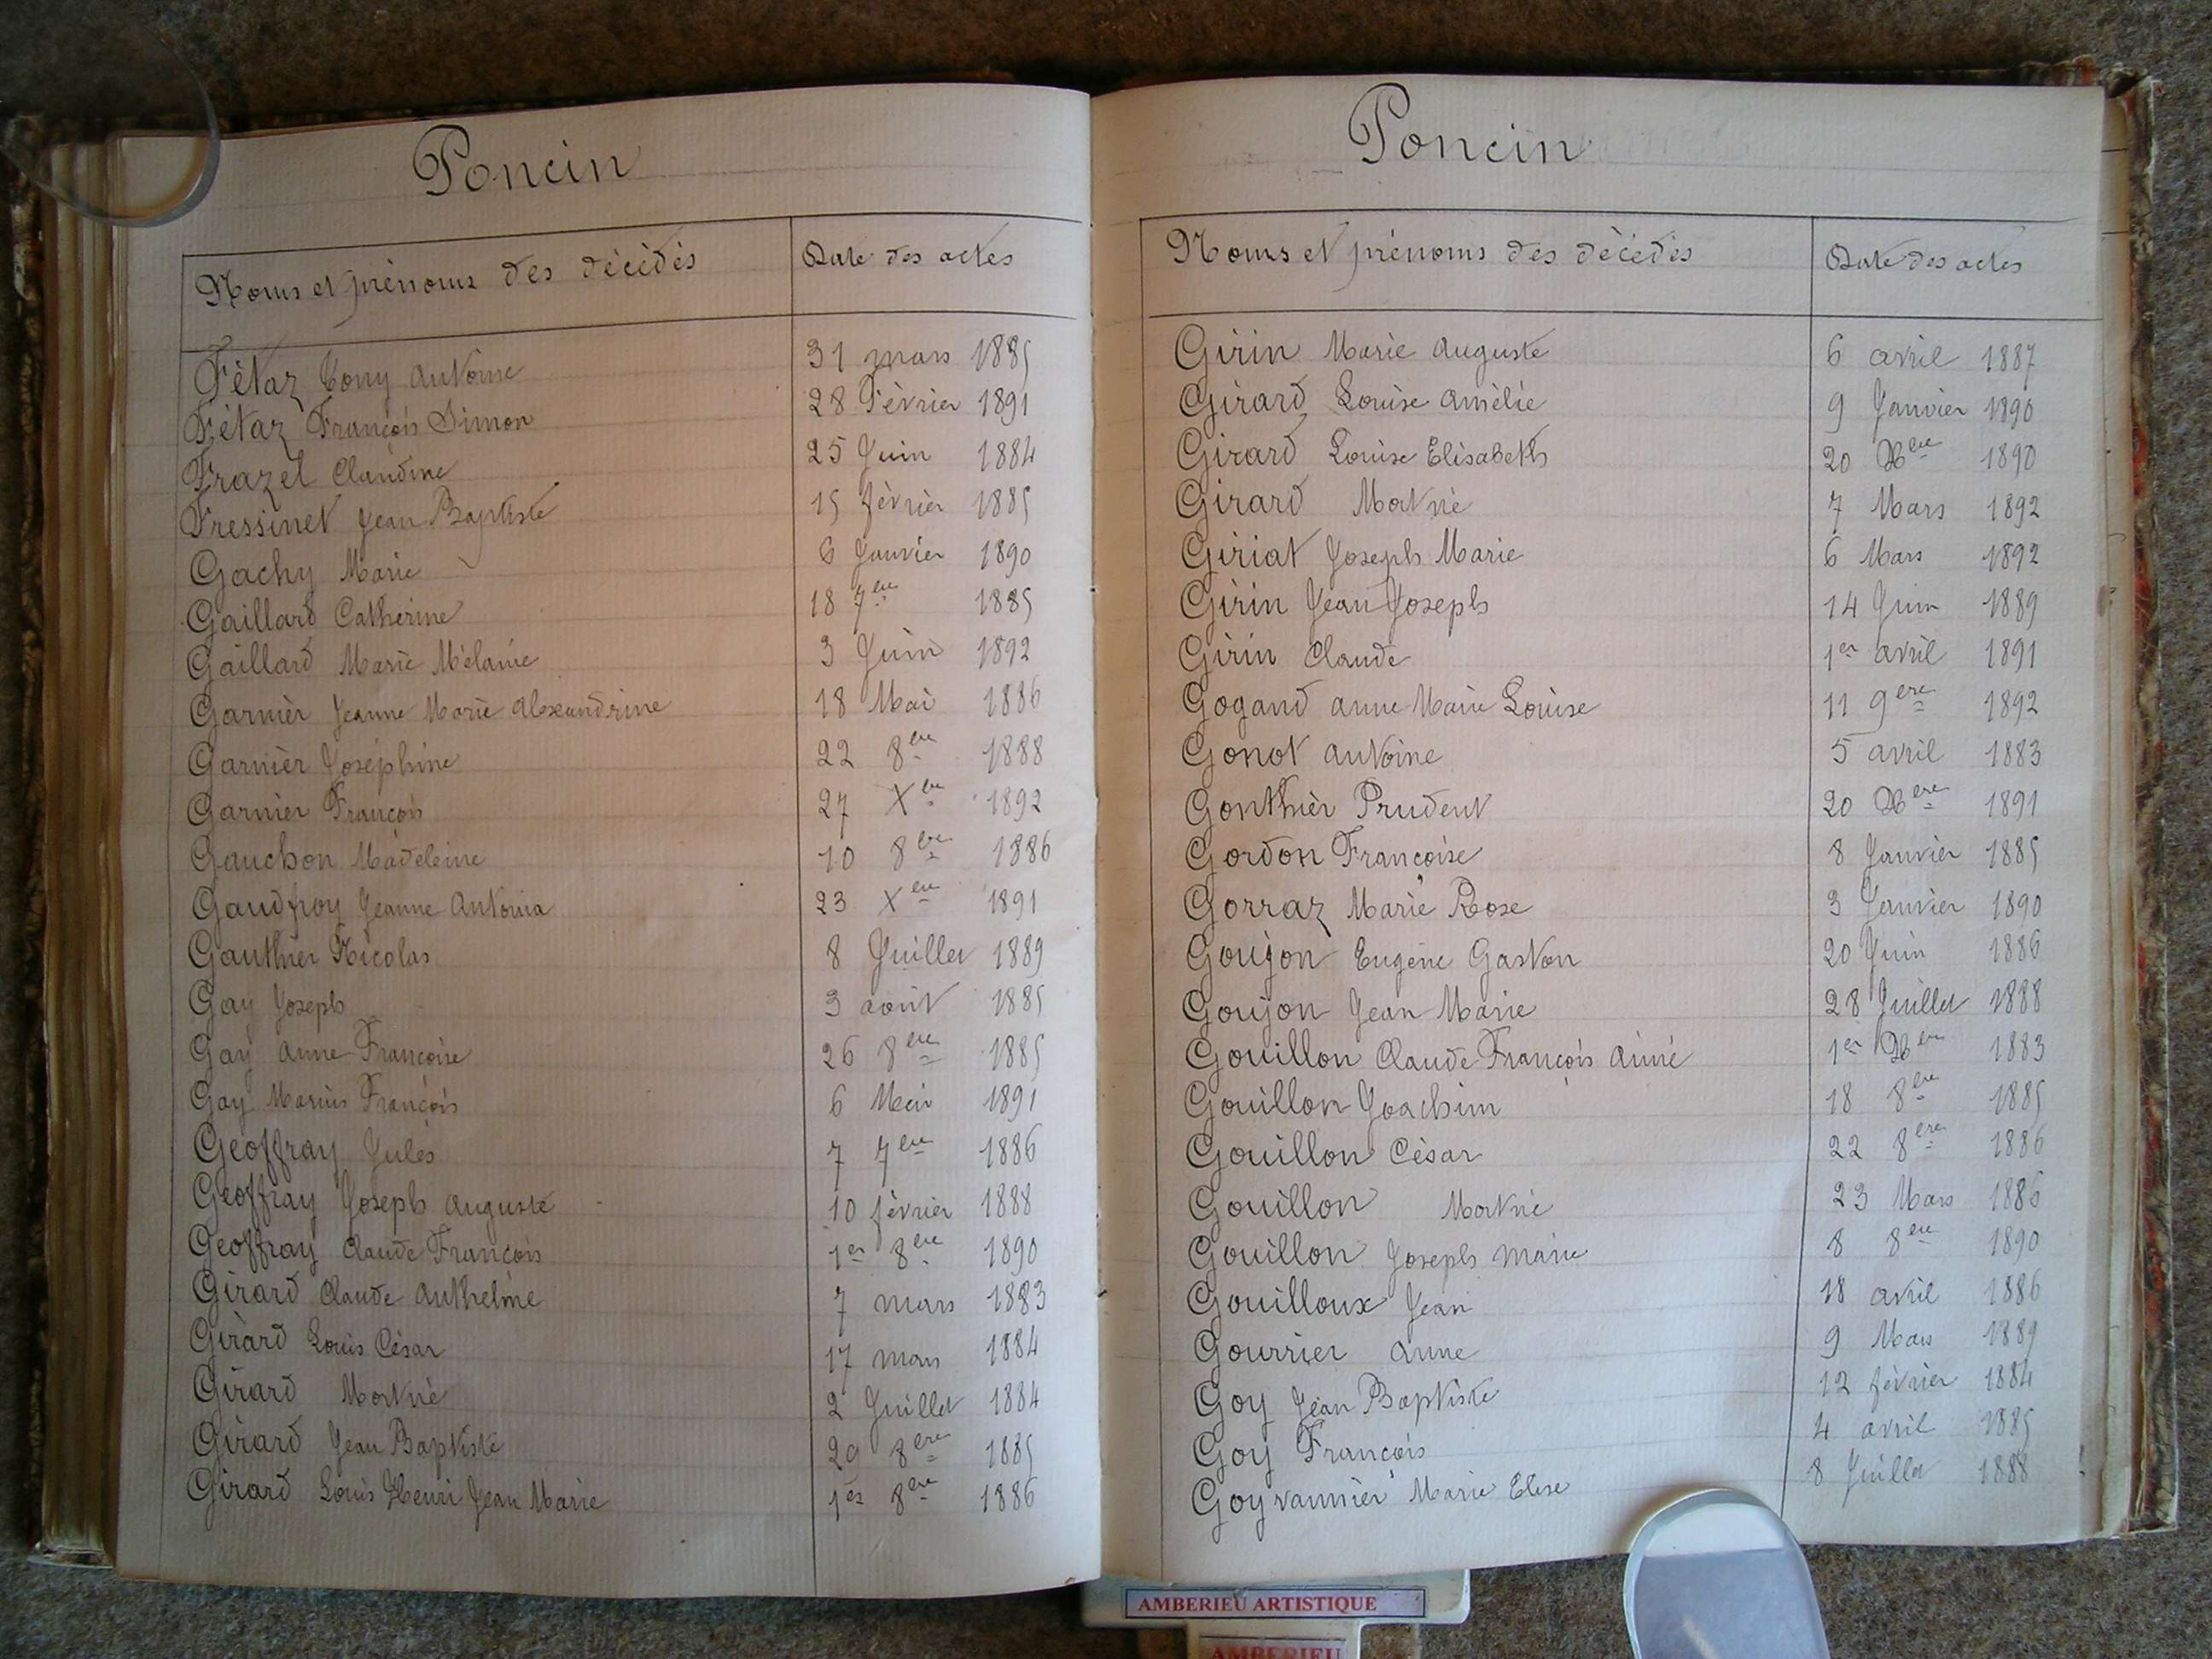 Poncin
Noms et prénoms des décédés Date des actes
Fétaz Tony Antoine 31 mars 1885
Fétaz François Simon 28 Février 1891
Frazet Claudine 25 Juin 1884
Fressinet Jean Baptiste 15 février 1885
Gachy Marie 6 Janvier 1890
Gaillard Catherine 18 7ere 1885
Gaillard Marie Mélanie 3 Juin 1892
Garnier Jeanne Marie Alexandrine 18 Mai 1886
Garnier Joséphine 22 8ere 1888
Garnier François 27 Xere 1892
Gauchon Madeleine 10 8ere 1886
Gaudfroy Jeanne Antonia 23 Xere 1891
Gauthier Nicolas 8 Juillet 1889
Gay Joseph 3 août 1885
Gay Anne Françoise 26 8ere 1885
Gay Marius François 6 Mai 1891
Geoffray Jules 7 7ere 1886
Geoffray Joseph Auguste 10 février 1888
Geoffray Claude François 1er 8ere 1890
Girard Claude Anthelme 7 mars 1883
Girard Louis César 17 mars 1884
Girard Mort né 2 Juillet 1884
Girard Jean Baptiste 29 8ere 1885
Girard Louis Henri Jean Marie 1er 8ere 1886
Poncin
Noms et prénoms des décédés Date des actes
Girin Marie Auguste 6 avril 1887
Girard Louise Amélie 9 Janvier 1890
Girard Louise Elisabeth 20 Xbere 1890
Girard Mort né 7 Mars 1892
Giriat Joseph Marie 6 Mars 1892
Girin Jean Joseph 14 Juin 1889
Girin Claude 1er avril 1891
Gogand Anne Marie Louise 11 9ere 1892
Gonot Antoine 5 avril 1883
Gonthier Prudent 20 Xbere 1891
Gordon Françoise 8 Janvier 1885
Gorraz Marie Rose 3 Janvier 1890
Goujon Eugène Gaston 20 Juin 1886
Goujon Jean Marie 28 Juillet 1888
Gouillon Claude François Aimé 1er Xbere 1883
Gouillon Joachim 18 8ere 1885
Gouillon César 22 8ere 1886
Gouillon Mort né 23 Mars 1886
Gouillon Joseph Marie 8 8ere 1890
Gouilloux Jean 18 avril 1886
Gourrier Anne 9 Mars 1889
Goy Jean Baptiste 12 février 1884
Goy François 4 avril 1885
Goyvannier Marie Elise 8 Juillet 1888
AMBERIEU ARTISTIQUE
AMBERIEU